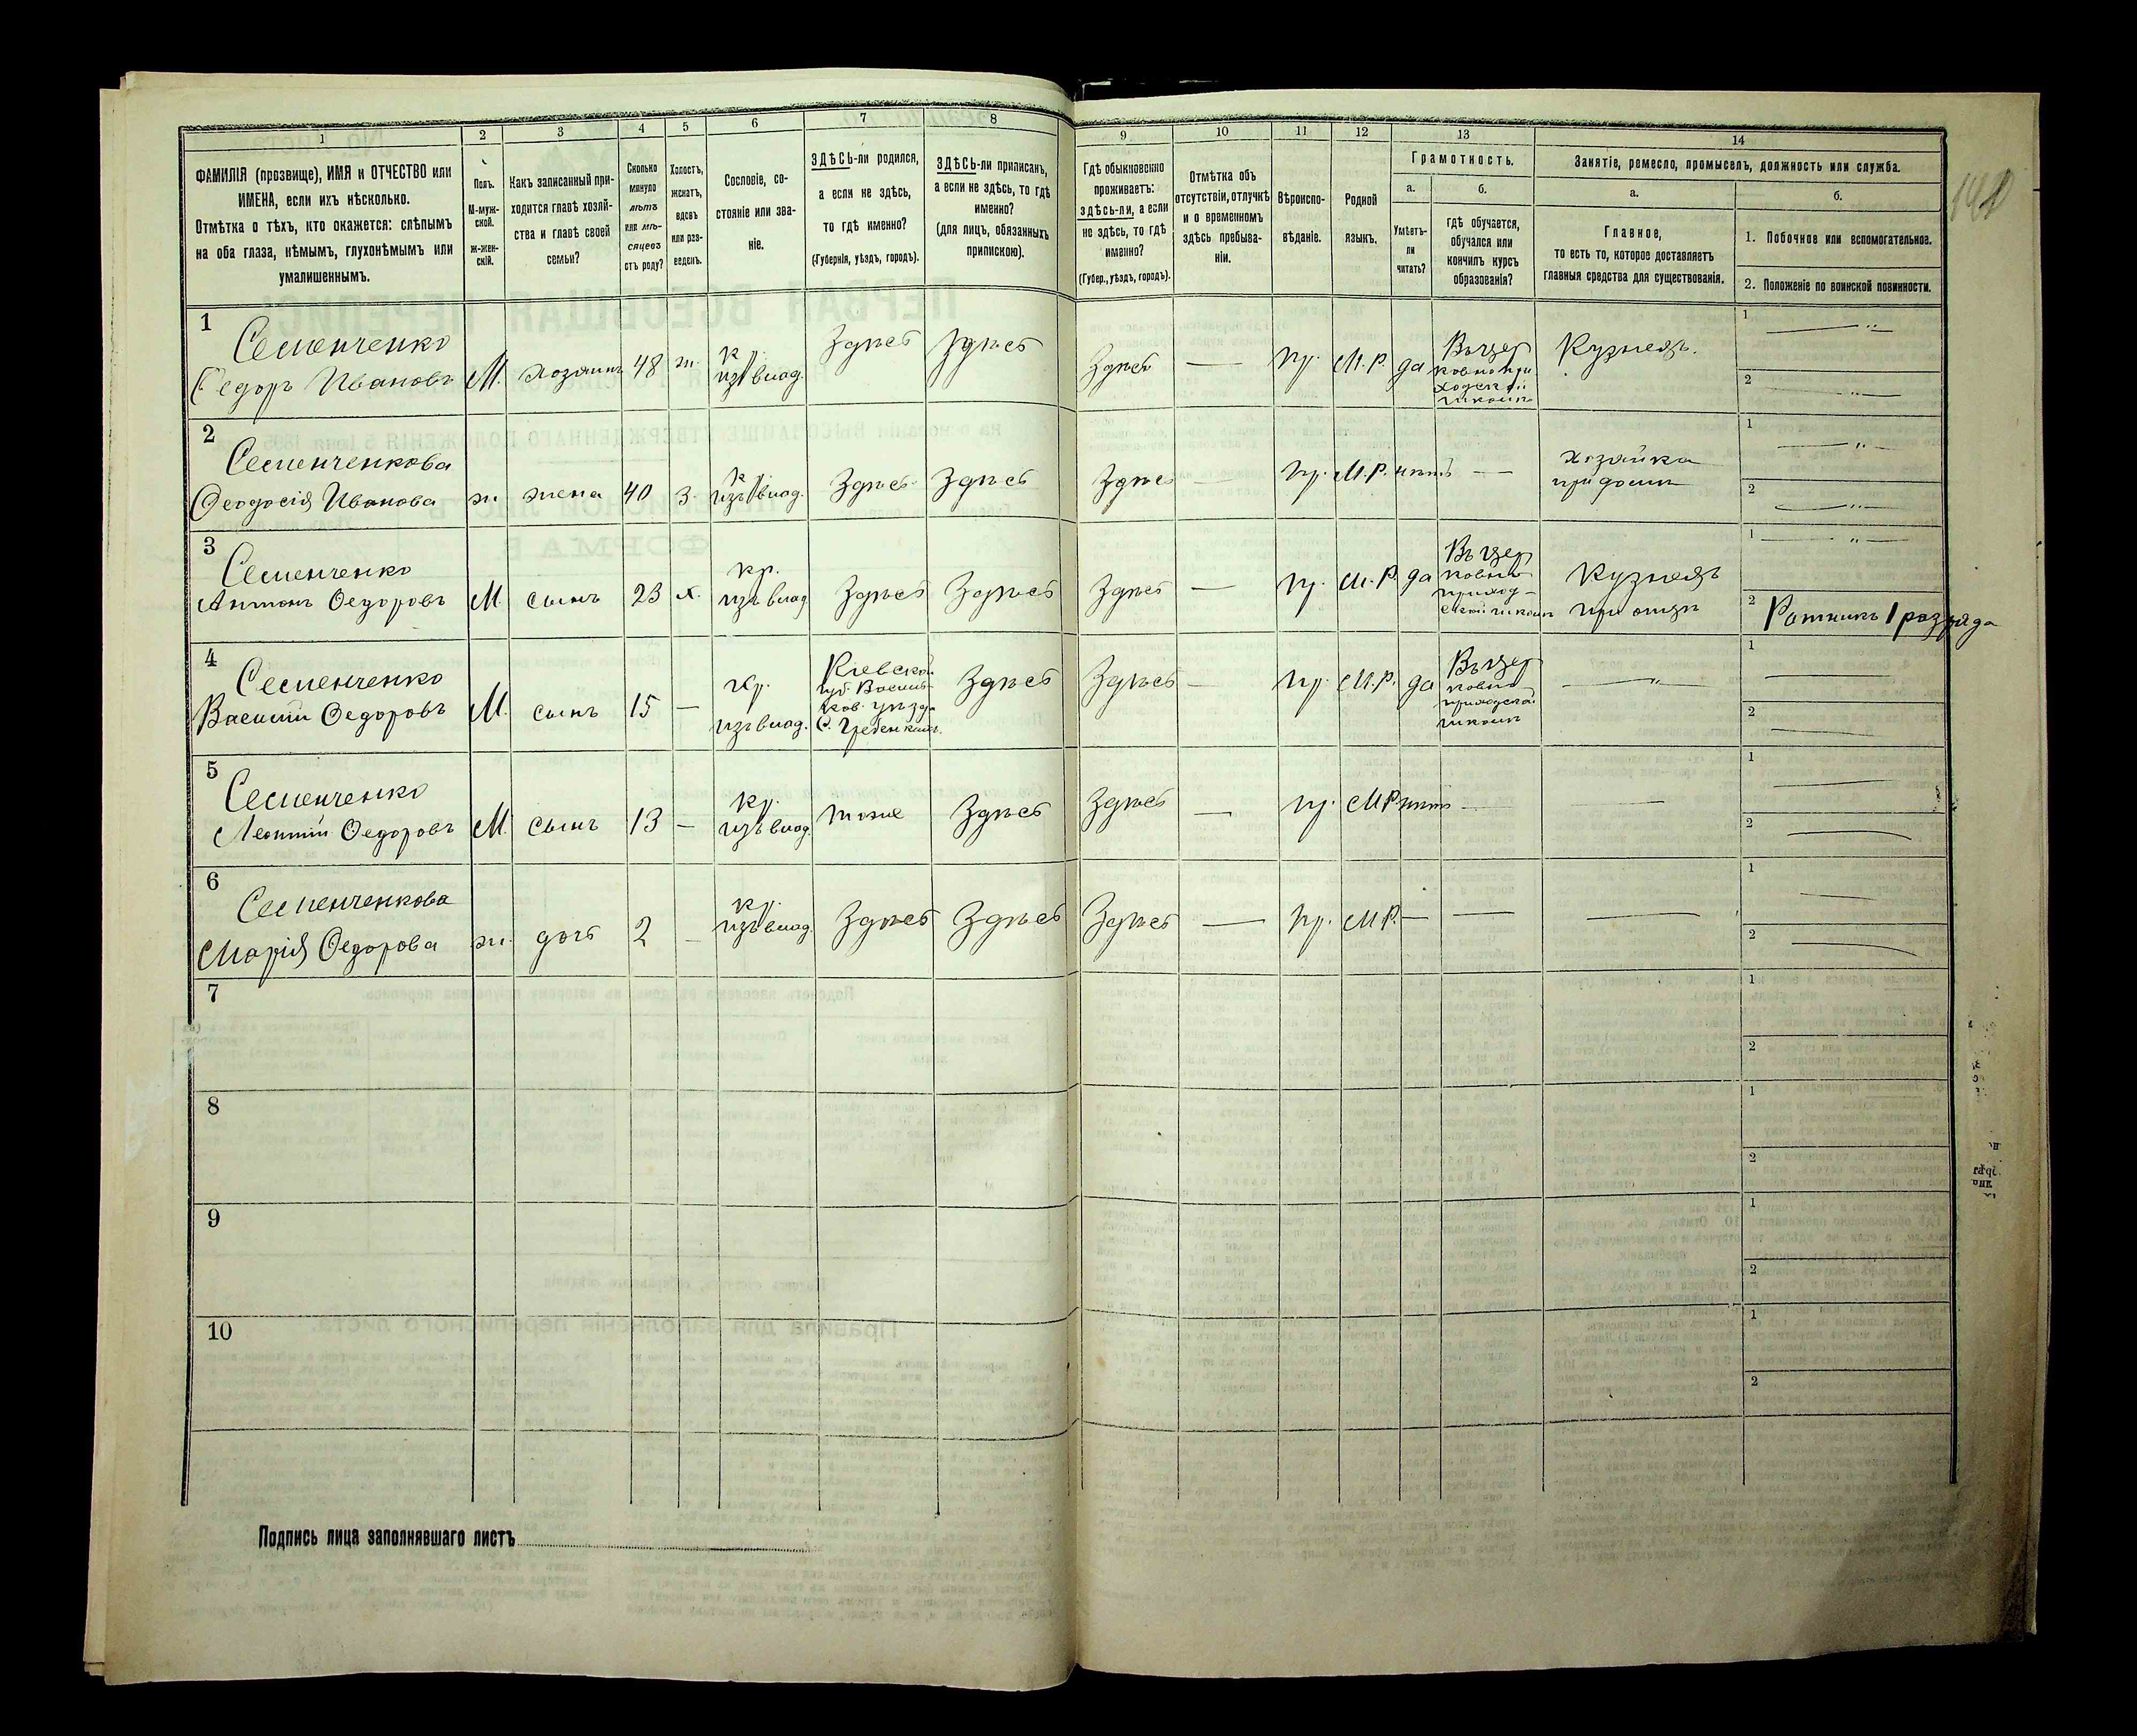 1 2 3 4 5 6 7 8 9 10 11 12 13 14
ФАМИЛІЯ (прозвище), ИМЯ и ОТЧЕСТВО или
ИМЕНА, если ихъ нѣсколько.
Отмѣтка о тѣхъ, кто окажется: слѣпымъ
на оба глаза, нѣмымъ, глухонѣмымъ или
умалишеннымъ.
Полъ.
М-муж-
ской.
Ж-жен-
скій.
Какъ записанный при-
ходится главѣ хозяй-
ства и главѣ своей
семьи?
Сколько
минуло
лѣтъ
или мѣ-
сяцевъ
отъ роду?
Холостъ,
женатъ,
вдовъ
или раз-
веденъ.
Сословіе, со-
стояніе или зва-
ніе.
ЗДѢСЬ-ли родился,
а если не здѣсь,
то гдѣ именно?
(Губернія, уѣздъ, городъ).
ЗДѢСЬ-ли приписанъ,
а если не здѣсь, то гдѣ
именно?
(для лицъ, обязанныхъ
припискою).
Гдѣ обыкновенно
проживаетъ:
здѣсь-ли, а если
не здѣсь, то гдѣ
именно?
(Губер., уѣздъ, городъ).
Отмѣтка объ
отсутствіи, отлучкѣ
и о временномъ
здѣсь пребыва-
ніи.
Вѣроиспо-
вѣданіе.
Родной
языкъ.
Грамотность.
а.
Умѣетъ-
ли
читать?
б.
Гдѣ обучается,
обучался или
кончилъ курсъ
образованія?
Занятіе, ремесло, промыселъ, должность или служба.
а.
Главное,
то есть то, которое доставляетъ
главныя средства для существованія.
б.
1. Побочное или вспомогательное.
2. Положеніе по воинской повинности.
1
Семенченко
Ѳедоръ Ивановъ М. хозяинъ 48 ж.
кр.
изъ влад.
Здѣсь Здѣсь Здѣсь — пр. М.Р. да
Въ цер
ковнопри
ходской
школѣ
Кузнецъ.
1 — " —
2 — " —
2
Семенченкова
Ѳеодосія Иванова ж жена 40 з.
кр.
изъ влад.
Здѣсь Здѣсь Здѣсь — пр. М.Р. нѣтъ —
хозяйка
при домѣ
1 — " —
2 — " —
3
Семенченко
Антонъ Ѳедоровъ М. сынъ 23 х.
кр.
изъ влад
Здѣсь Здѣсь Здѣсь — пр. М.Р. да
Въ цер
ковно
приход-
ской школѣ
Кузнецъ
при отцѣ
1 — " —
2 Ратникъ 1 розряда
4
Семенченко
Василій Ѳедоровъ М. сынъ 15 —
кр.
изъ влад.
Кіевской
губ. Василь-
ков. уѣзда
С. Гребенкахъ.
Здѣсь Здѣсь — пр. М.Р. да
Въ цер
ковно
приходской
школѣ
— " —
1 —
2 —
5
Семенченко
Леонтій Ѳедоровъ М. сынъ 13 —
кр.
изъ влад.
тоже Здѣсь Здѣсь — пр. МР нѣтъ — —
1 —
2 —
6
Семенченкова
Марія Ѳедорова ж. дочь 2 —
кр.
изъ влад.
Здѣсь Здѣсь Здѣсь — пр. МР. — — —
1 —
2 —
7
1
2
8
1
2
9
1
2
10
1
2
Подпись лица заполнявшаго листъ